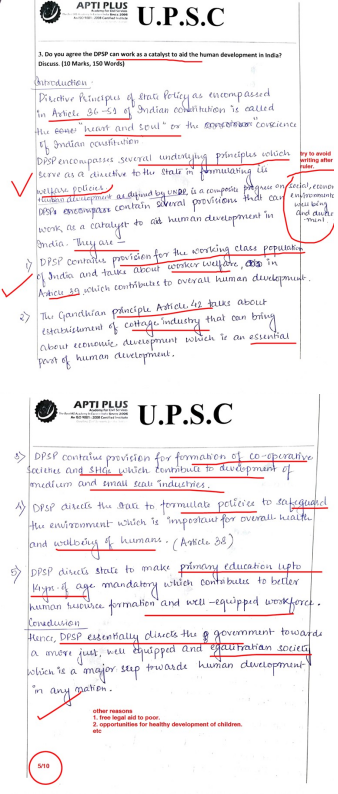 APTI PLUS
Academy for Civil Services
An ISO 9001 : 2008 Certified Institute
U.P.S.C
3. Do you agree the DPSP can work as a catalyst to aid the human development in India?
Discuss. (10 Marks, 150 Words)
Introduction -
Directive Principles of State Policy as encompassed
in Article 36-51 of Indian constitution is called
the "heart and soul" or the conscience
of Indian constitution
DPSP encompasses several underlying principles which
serve as a directive to the State in formulating its
welfare policies.
try to avoid
writing after
ruler.
Human development as defined by UNDP, is a composite progress on social, economic
environment
well being
and
ment
DPSP contain several provisions that can
work as a catalyst to aid human development in
India. They are —
1) DPSP contains provision for the working class population
of India and talks about worker welfare, in
Article 39 which contributes to overall human development.
2) The Gandhian principle Article 42 talks about
establishment of cottage industry that can bring
about economic development which is an essential
part of human development.
APTI PLUS
Academy for Civil Services
An ISO 9001 : 2008 Certified Institute
U.P.S.C
3) DPSP contains provision for formation of co-operative
societies and SHGs which contribute to development of
medium and small scale industries.
4) DPSP directs the state to formulate policies to safeguard
the environment which is important for overall health
and wellbeing of humans. (Article 38)
5) DPSP directs state to make primary education upto
of age mandatory which contributes to better
human resource formation and well-equipped workforce.
Conclusion
Hence, DPSP essentially directs the government towards
a more just, well equipped and egalitarian society
which is a major step towards human development
in any nation.
other reasons
1. free legal aid to poor.
2. opportunities for healthy development of children.
etc
5/10